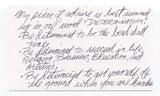 My piece of advice is best summed
up in one word "DETERMINATION".
Be determined to be the best darn
Be determined to succeed in life,
Religion, Business, Education, and
Be determined to get yourself off
the ground when you are knocked